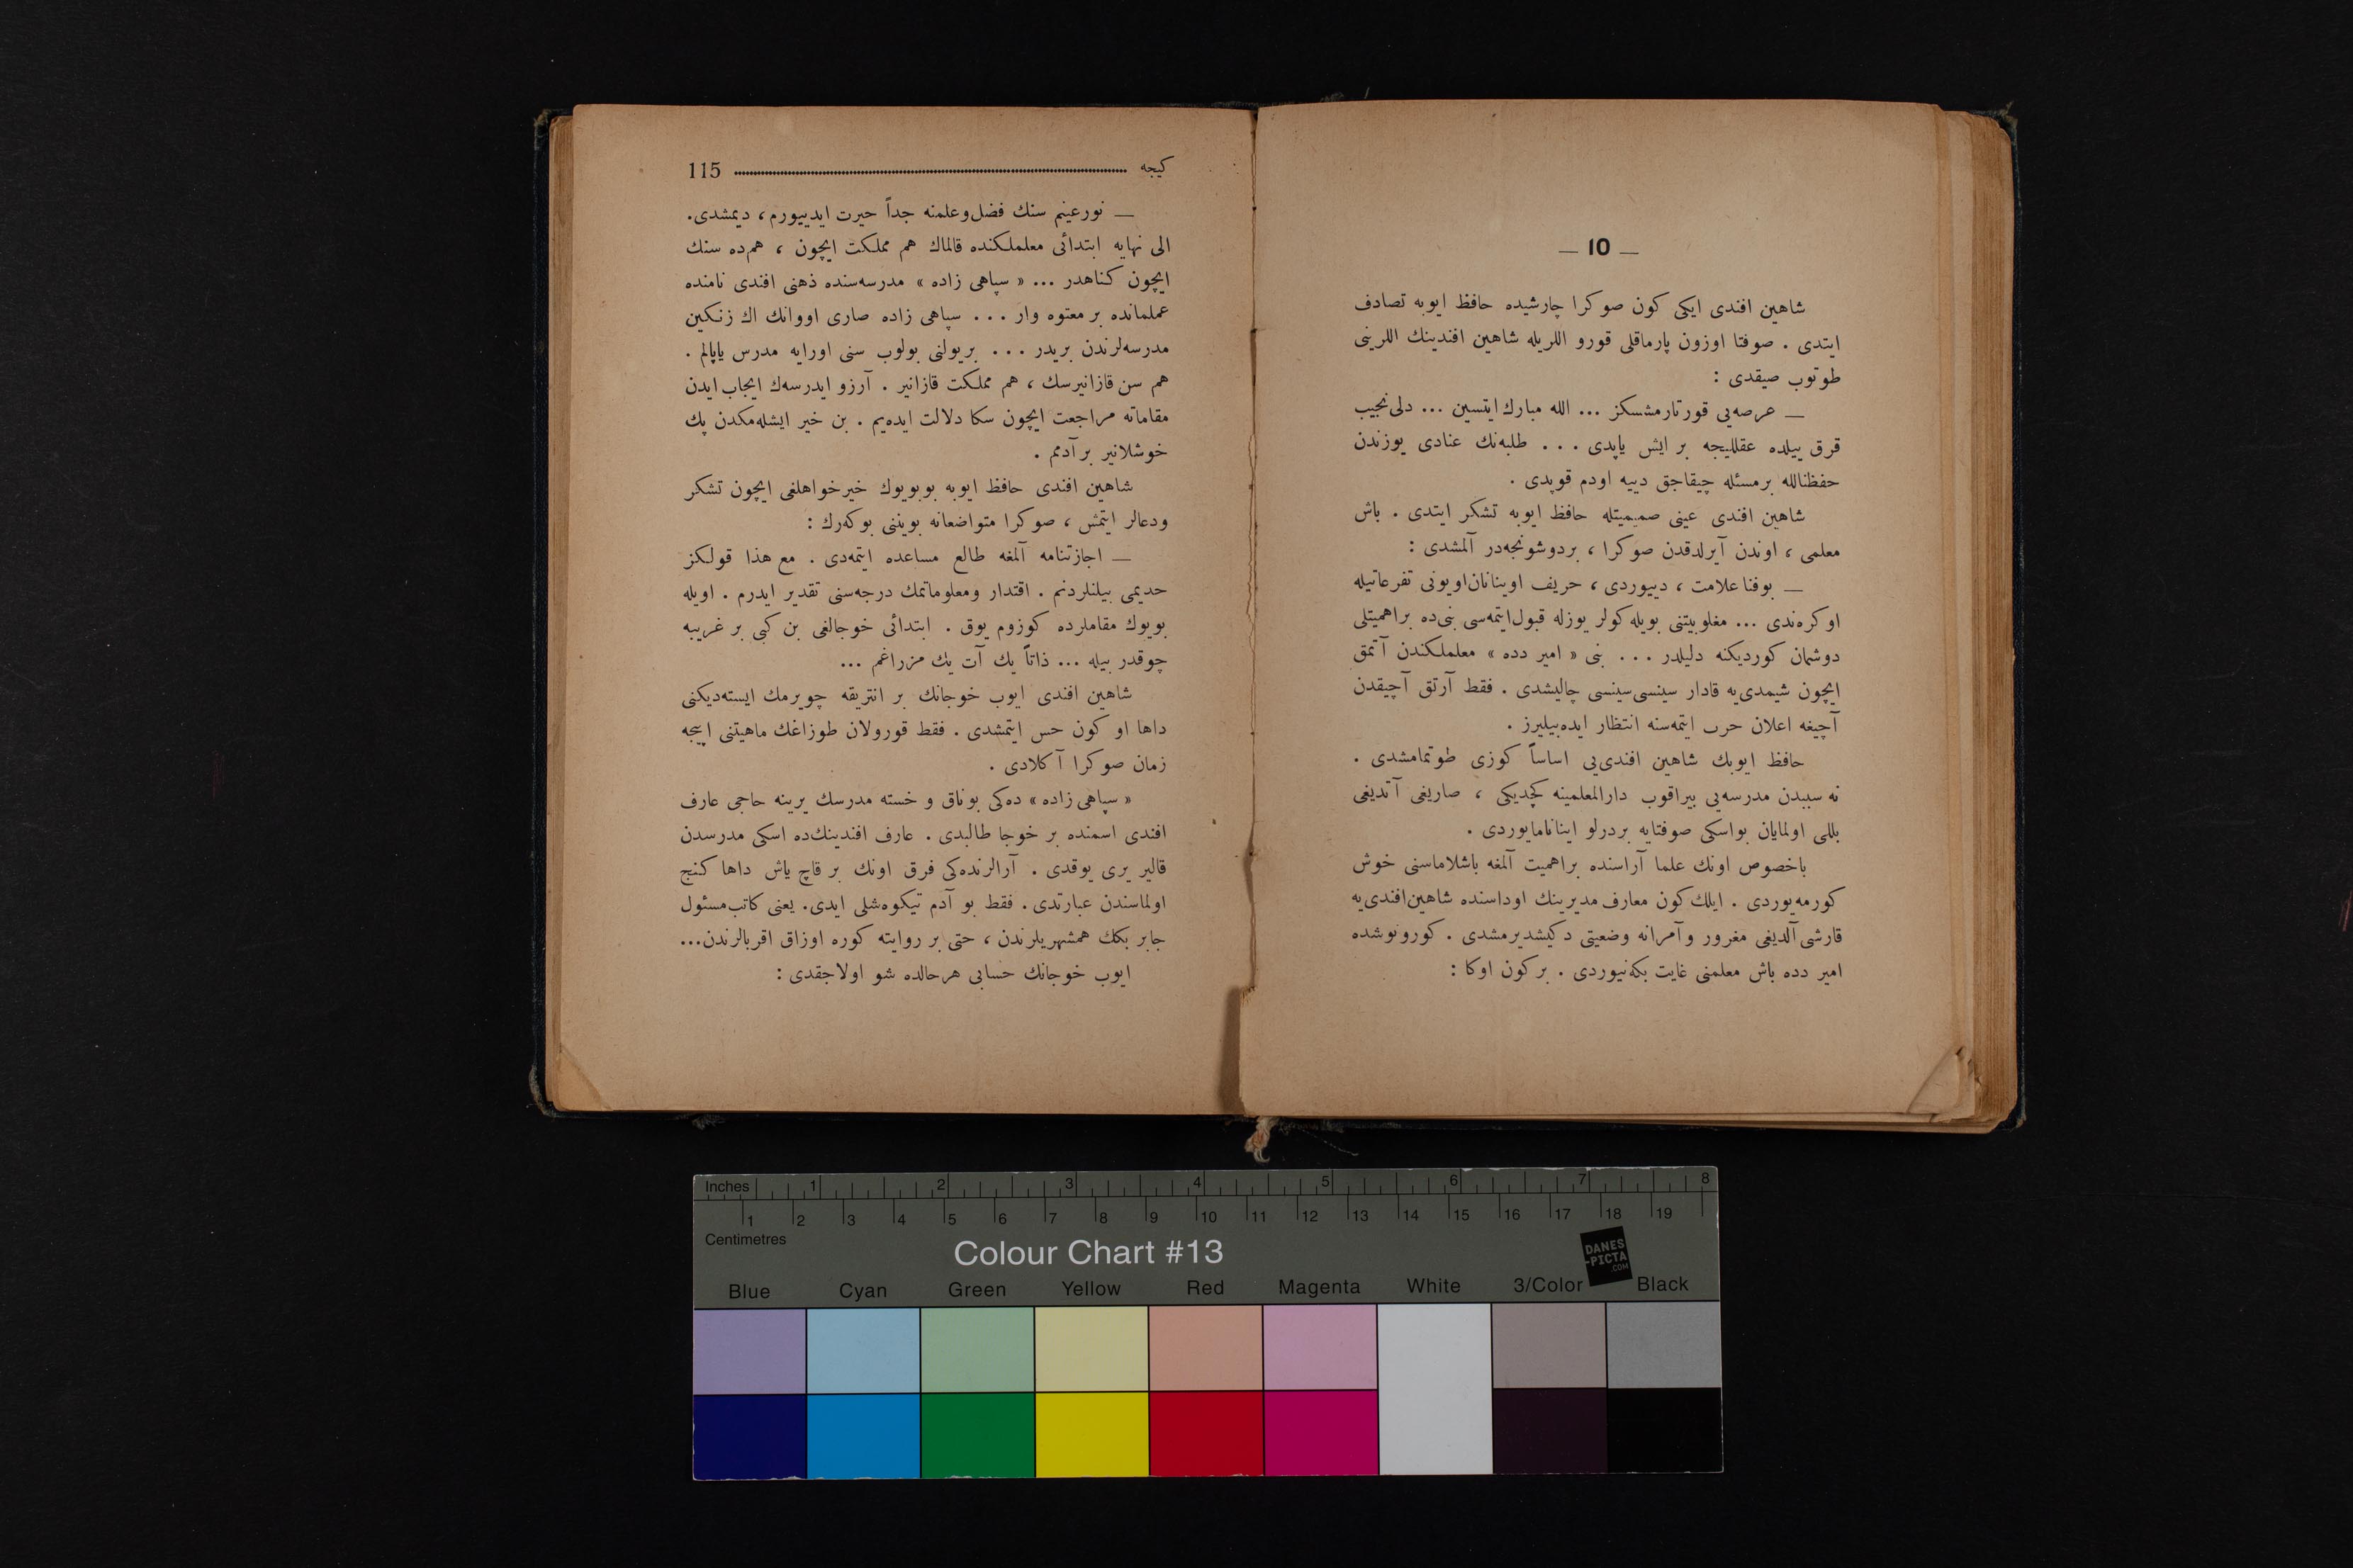 — 10 —
شاهین افندی ایکی كون صوكرا چارشیده حافظ ایوبه تصادف
ایتدی . صوفتا اوزون پارماقلی قورو اللریله شاهین افندینك اللرینی
طوتوب صیقدی :
— عرصه‌یی قورتارمشسكز ... الله مبارك ایتسین ... دلی نجیب
قرق ییلده عقللیجه بر ایش یاپدی . . . طلبه‌نك عنادی یوزندن
حفظنالله بر مسئله چیقاجق دییه اودم قوپدی .
شاهین افندی عینی صمیمیتله حافظ ایوبه تشكر ایتدی . باش
معلمی ، اوندن آیرلدقدن صوكرا ، بر دوشونجه‌در آلمشدی :
— بو فنا علامت ، دییوردی ، حریف اوینانان اویونی تفرعاتیله
اوكره‌ندی ... مغلوبیتنی بویله كولر یوزله قبول ایتمه‌سی بنی‌ده بر اهمیتلی
دوشمان كوردیكنه دلیلدر . . . بنی « امیر دده » معلملكندن آتمق
ایچون شیمدی‌یه قادار سینسی سینسی چالیشدی . فقط آرتق آچیقدن
آچیغه اعلان حرب ایتمه‌سنه انتظار ایده‌بیلیرز .
حافظ ایوبك شاهین افندی‌یی اساساً كوزی طوتمامشدی .
نه سببدن مدرسه‌یی بیراقوب دارالمعلمینه كچدیكی ، صاریغی آتدیغی
بللی اولمایان بو اسكی صوفتایه بر درلو اینانامایوردی .
باخصوص اونك علما آراسنده بر اهمیت آلمغه باشلاماسنی خوش
كورمه‌یوردی . ایلك كون معارف مدیرینك اوداسنده شاهین افندی‌یه
قارشی آلدیغی مغرور و آمرانه وضعیتی دكیشدیرمشدی . كورونوشده
امیر دده باش معلمنی غایت بكه‌نیوردی . بر كون اوكا :
كیجه 115
— نورعینم سنك فضل و علمنه جداً حیرت ایدییورم ، دیمشدی.
الی نهایه ابتدائی معلملكنده قالماك هم مملكت ایچون ، هم‌ده سنك
ایچون كناهدر ... « سپاهی زاده » مدرسه‌سنده ذهنی افندی نامنده
عملمانده بر معتوه وار . . . سپاهی زاده صاری اووانك اك زنكین
مدرسه‌لرندن بریدر . . . بر یولنی بولوب سنی اورایه مدرس یاپالم .
هم سن قازانیرسك ، هم مملكت قازانیر . آرزو ایدرسه‌ك ایجاب ایدن
مقاماته مراجعت ایچون سكا دلالت ایده‌یم . بن خیر ایشله‌مكدن پك
خوشلانیر بر آدمم .
شاهین افندی حافظ ایوبه بو بویوك خیرخواهلغی ایچون تشكر
و دعالر ایتمش ، صوكرا متواضعانه بویننی بوكه‌رك :
— اجازتنامه آلمغه طالع مساعده ایتمه‌دی . مع هذا قولكز
حدیمی بیلنلردنم . اقتدار ومعلوماتمك درجه‌سنی تقدیر ایدرم . اویله
بویوك مقاملرده كوزوم یوق . ابتدائی خوجالغی بن كبی بر غریبه
چوقدر بیله ... ذاتاً یك آت یك مزراغم ...
شاهین افندی ایوب خوجانك بر انتریقه چویرمك ایسته‌دیكنی
داها او كون حس ایتمشدی . فقط قورولان طوزاغك ماهیتنی اییجه
زمان صوكرا آكلادی .
« سپاهی زاده » ده‌كی بوناق و خسته مدرسك یرینه حاجی عارف
افندی اسمنده بر خوجا طالبدی . عارف افندینك‌ده اسكی مدرسدن
قالیر یری یوقدی . آرالرنده‌كی فرق اونك بر قاچ یاش داها كنج
اولماسندن عبارتدی . فقط بو آدم تیكوه‌شلی ایدی. یعنی كاتب مسئول
جابر بكك همشهریلرندن ، حتی بر روایته كوره اوزاق اقربالرندن...
ایوب خوجانك حسابی هر حالده شو اولاجقدی :
Inches 1 2 3 4 5 6 7 8
1 2 3 4 5 6 7 8 9 10 11 12 13 14 15 16 17 18 19
Centimetres
Colour Chart #13
DANES
-PICTA
.COM
Blue Cyan Green Yellow Red Magenta White 3/Color Black